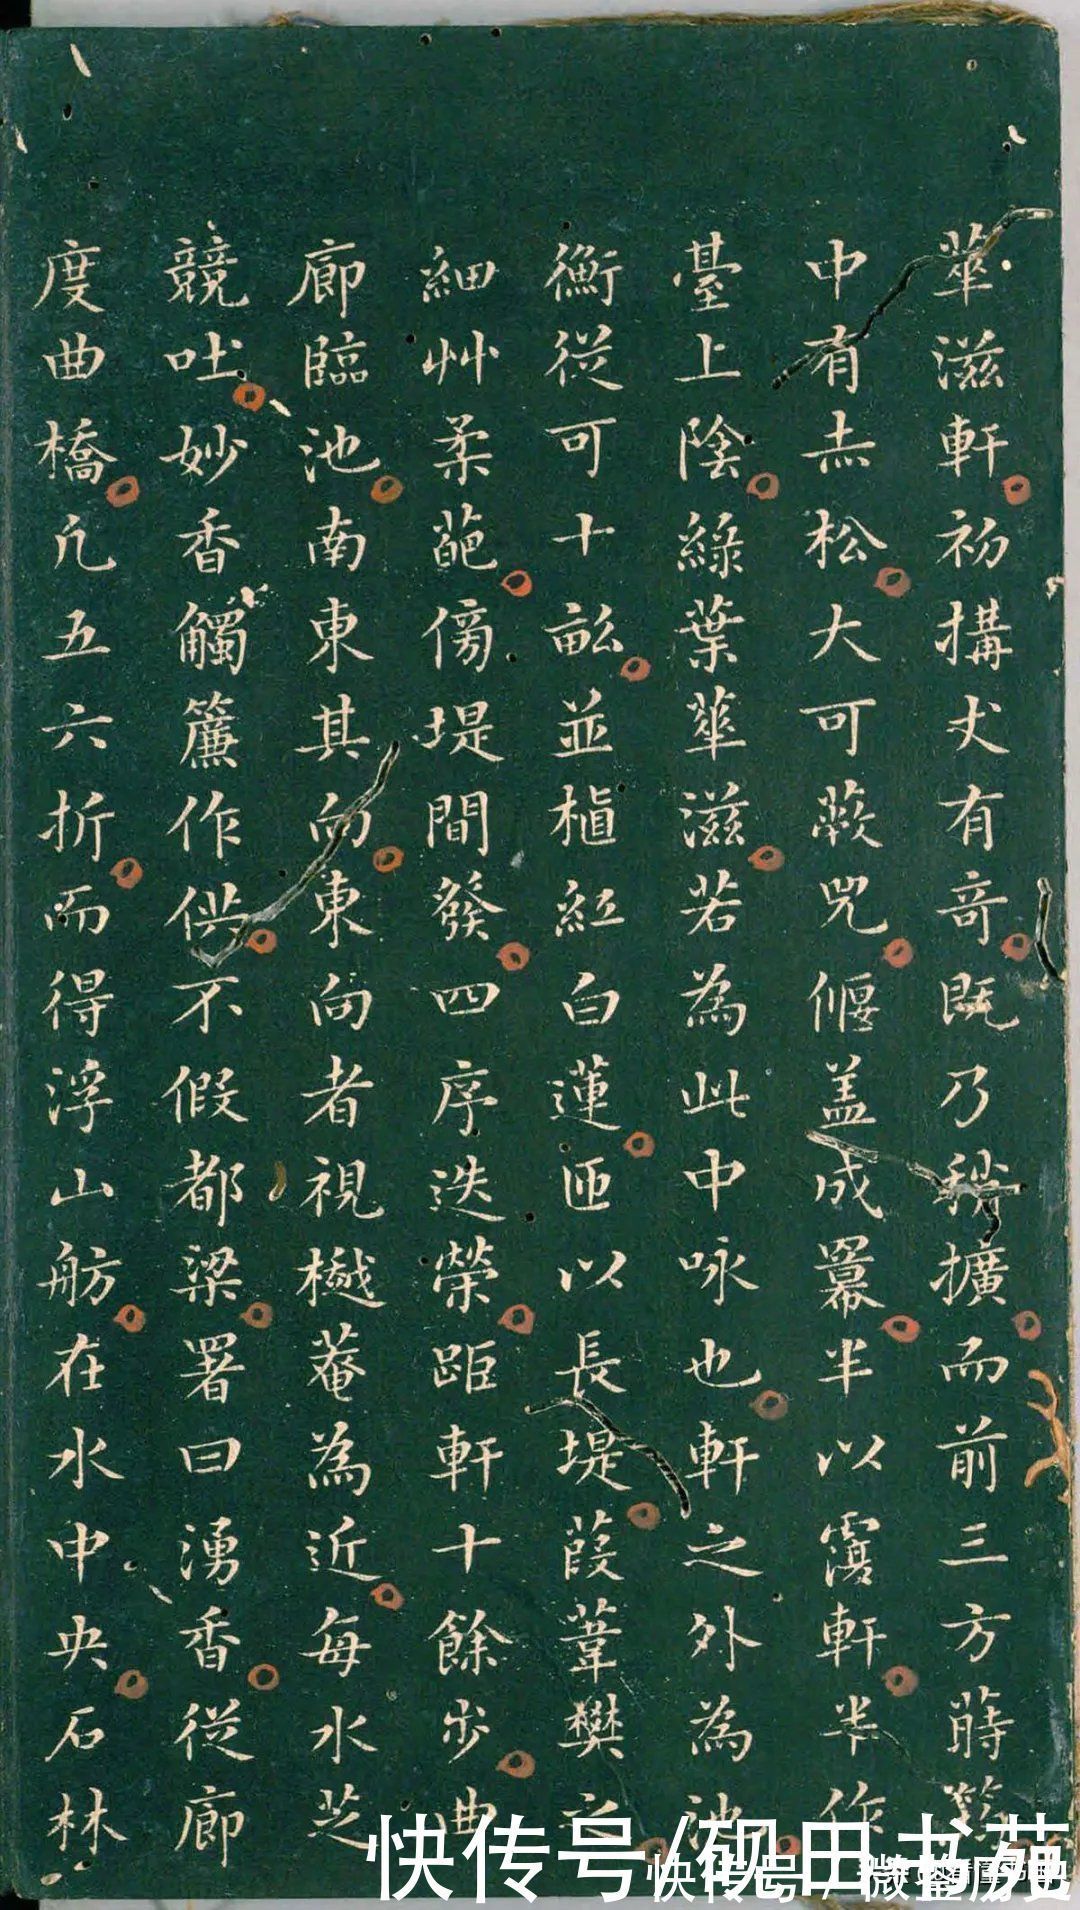 華滋軒初搆丈有奇既乃稍擴而前三方蒔
中有赤松大可蔽兕偃盖成羃半以覆軒半作
臺上陰綠葉華滋若為此中咏也軒之外為池
衡從可十畝並植紅白蓮匝以長堤葭葦樊之
細艸柔葩傍堤間發四序迭榮距軒十餘步曲
廊臨池南東其向東向者視樾菴為近每水芝
競吐妙香觸簾作供不假都梁署曰湧香從廊
度曲橋凢五六折而得浮山舫在水中央石林
快传号/砚田书苑
快传号/微